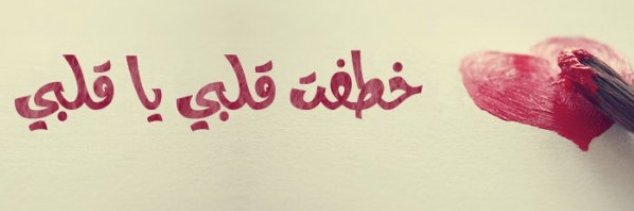 خطفت قلبي يا قلبي